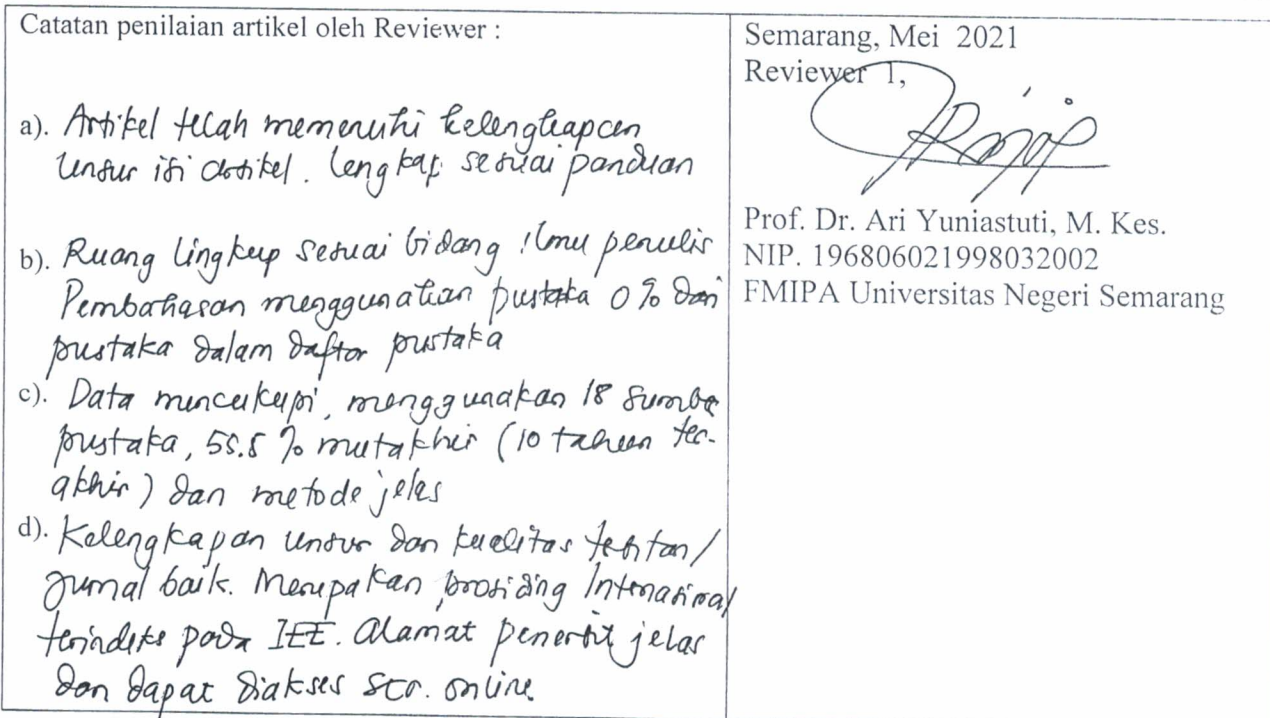 Catatan penilaian artikel oleh Reviewer :
a). Artikel telah memenuhi kelengkapan
unsur isi artikel. Lengkap sesuai panduan
b). Ruang lingkup sesuai bidang ilmu penulis
Pembahasan menggunakan pustaka 0 % dari
pustaka dalam daftar pustaka
c). Data mencukupi, menggunakan 18 sumbe
pustaka, 55.5 % mutakhir (10 tahun ter-
akhir) dan metode jelas
d). Kelengkapan unsur dan kualitas terbitan/
Jurnal baik. Merupakan prosiding Internasional
terindeks pada IEE. Alamat penerbit jelas
dan dapat diakses scr. online
Semarang, Mei 2021
Reviewer 1,
Prof. Dr. Ari Yuniastuti, M. Kes.
NIP. 196806021998032002
FMIPA Universitas Negeri Semarang